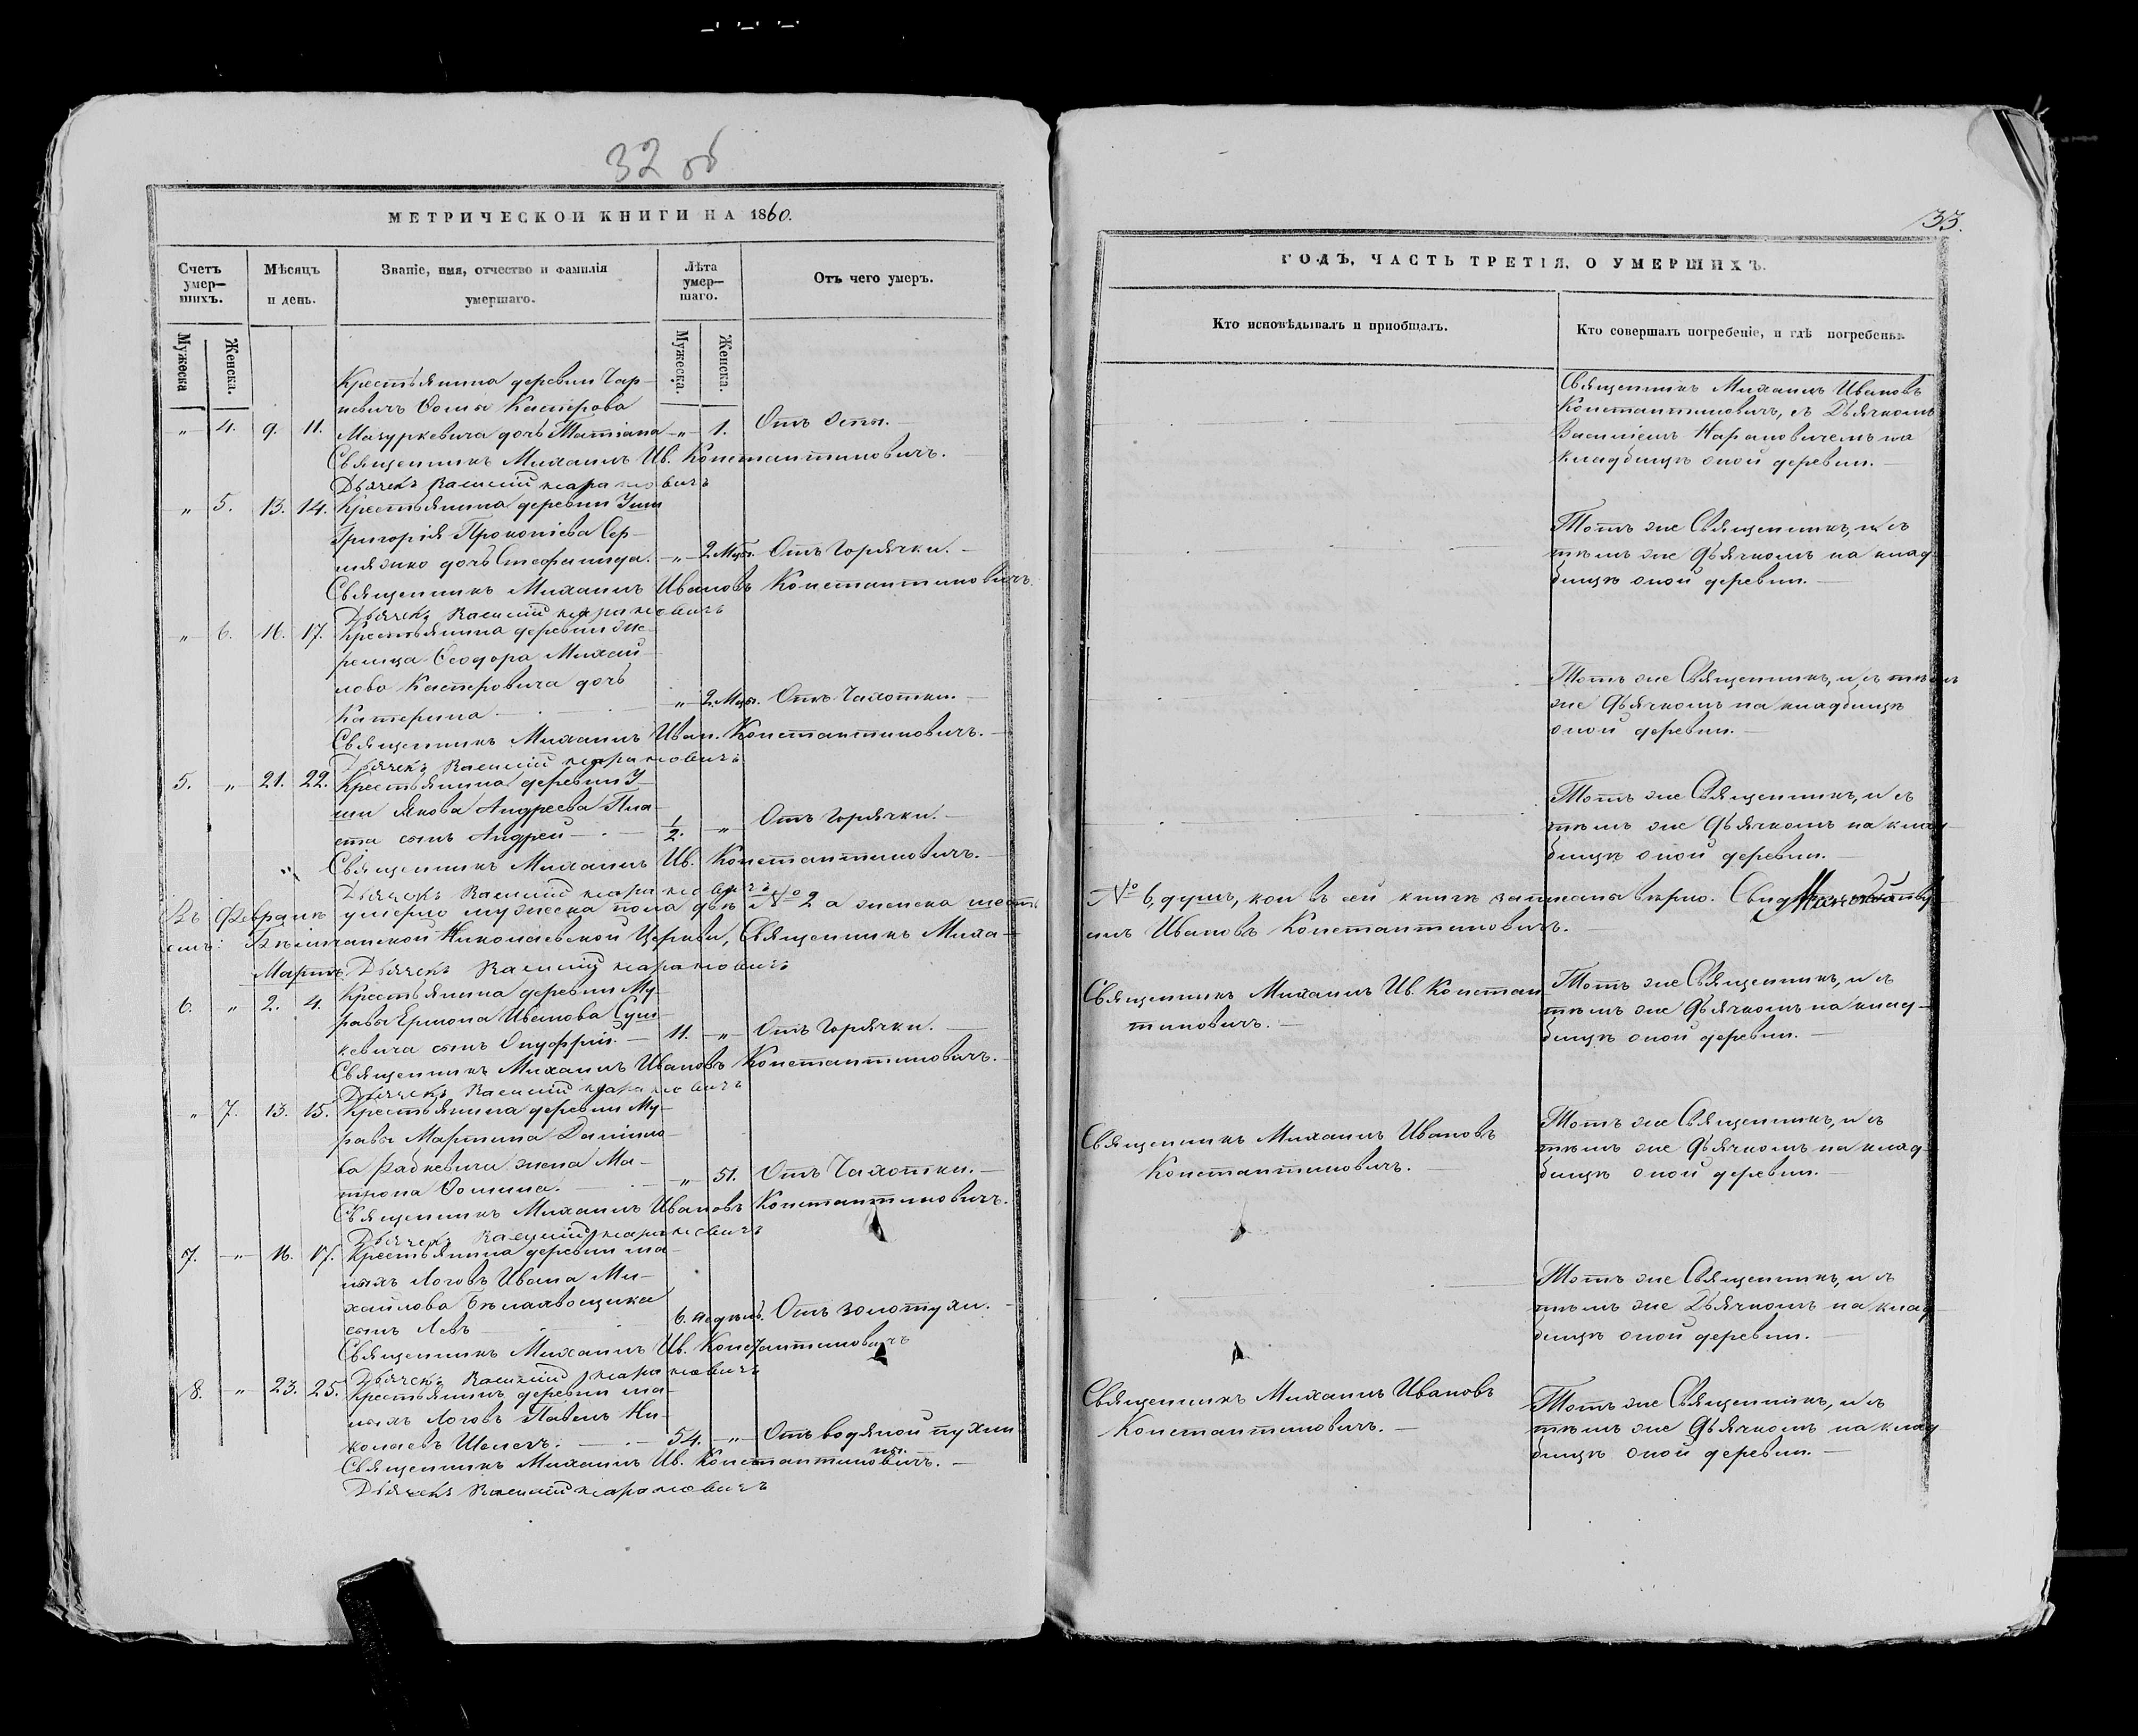 32 об
МЕТРИЧЕСКОИ КНИГИ НА 1860.
Счетъ умер-шихъ.
Мѣсяцъ и день.
Званіе, имя, отчество и фамилія умершаго.
Лѣта умер-шаго.
Отъ чего умеръ.
Мужеска
Женска.
Мужеска.
Женска.
Крестьянина деревни Чар-
невичъ Ѳомы Касперова
„ 4. 9. 11. Мазуркевича дочь Татіана „ 1. Отъ Оспы.
Священникъ Михаилъ Ив. Константиновичъ.
Дьячекъ Василій
„ 5. 13. 14. Крестьянина деревни Уши
Григорія Прокопіева Сер-
мяжко дочь Стефанида. „ 2. Мцы. Отъ Горячки.
Священникъ Михаилъ Ивановъ Константиновичъ.
Дьячекъ Василій
„ 6. 16. 17. Крестьянина деревни Же-
Ѳеодора Михай-
лова Касперовича дочь
Катерина „ 2. Мцы. Отъ Чахотки.
Священникъ Михаилъ Иван. Константиновичъ.
Дьячекъ Василій
5. „ 21. 22. Крестьянина деревни У-
ши Якова Андреева Пла-
ста сынъ Андрей 1/2. „ Отъ Горячки.
Священникъ Михаилъ Ив. Константиновичъ.
Дьячекъ Василій
Въ Февралѣ умерло мужеска пола двѣ № 2 а женска шесть
Николаевской Церкви, Священникъ Миха-
Мартъ. Дьячекъ Василій
6. „ 2. 4. Крестьянина деревни Му-
равы Ермола Иванова Суш-
кевича сынъ Онуфрій. 11. „ Отъ Горячки.
Священникъ Михаилъ Ивановъ Константиновичъ.
Дьячекъ Василій
„ 7. 13. 15. Крестьянина деревни Му-
равы Мартина Данило-
ва Рабкевича жена Ма-
трона Ѳомина. „ 51. Отъ Чахотки.
Священникъ Михаилъ Ивановъ Константиновичъ.
Дьячекъ Василій
7. „ 16. 17. Крестьянина деревни ма-
лыхъ Логовъ Ивана Ми-
хайлова
сынъ Левъ 6. недѣль. Отъ золотухи.
Священникъ Михаилъ Ив. Константиновичъ
Дьячекъ Василій
8. „ 23. 25. Крестьянинъ деревни ма-
лыхъ Логовъ Павелъ Ни-
колаевъ Шелегъ. 54. „ Отъ водяной пухли-
ны.
Священникъ Михаилъ Ив. Константиновичъ.
Дьячекъ Василій
33.
ГОДЪ, ЧАСТЬ ТРЕТІЯ, О УМЕРШИХЪ.
Кто исповѣдывалъ и пріобщалъ.
Кто совершалъ погребеніе, и гдѣ погребены.
Священникъ Михаилъ Ивановъ
Константиновичъ, съ Дьячкомъ
Василіемъ Нарановичемъ на
кладбищѣ оной деревни.
Тотъ же Священникъ, и съ
тѣмъ же Дьячкомъ на клад-
бищѣ оной деревни.
Тотъ же Священникъ, и съ тѣмъ
же Дьячкомъ на кладбищѣ
оной деревни.
Тотъ же Священникъ, и съ
тѣмъ же Дьячкомъ на клад-
бищѣ оной деревни.
№ 6, душъ, кои въ сей книгѣ записаны вѣрно.
илъ Ивановъ Константиновичъ.
Священникъ Михаилъ Ив. Констан
тиновичъ.
Тотъ же Священникъ, и съ
тѣмъ же Дьячкомъ на клад-
бищѣ оной деревни.
Священникъ Михаилъ Ивановъ
Константиновичъ.
Тотъ же Священникъ, и съ
тѣмъ же Дьячкомъ на клад-
бищѣ оной деревни.
Тотъ же Священникъ, и съ
тѣмъ же Дьячкомъ на клад-
бищѣ оной деревни.
Священникъ Михаилъ Ивановъ
Константиновичъ.
Тотъ же Священникъ, и съ
тѣмъ же Дьячкомъ на клад-
бищѣ оной деревни.